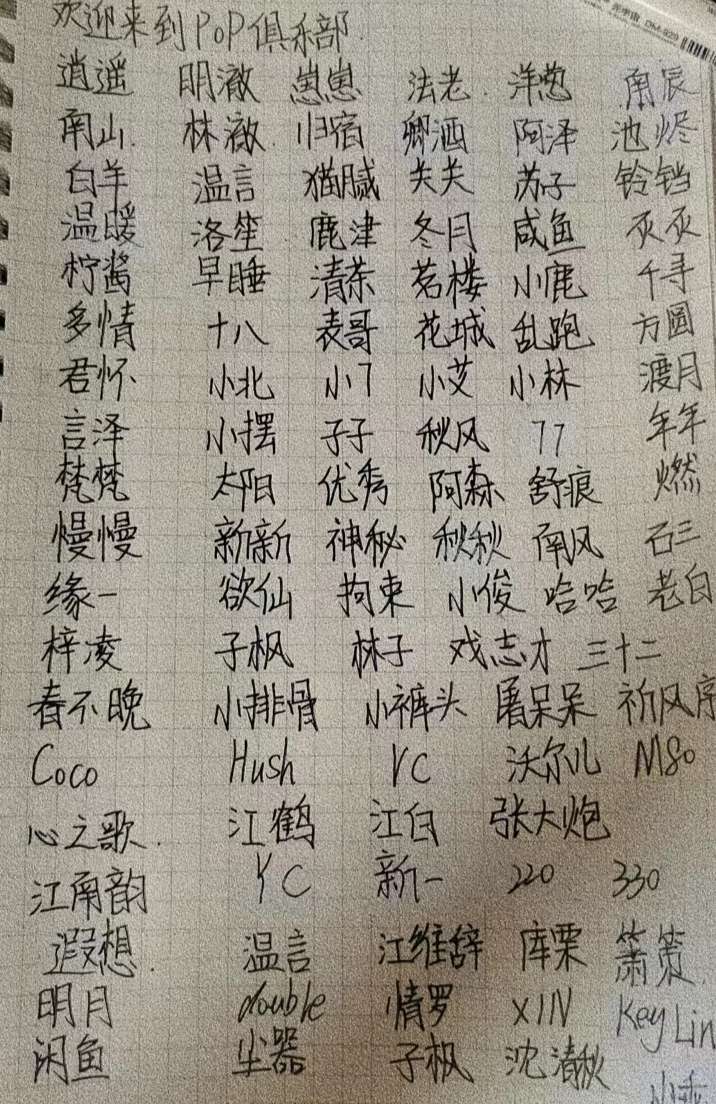 欢迎来到PoP俱乐部
逍遥 明澈 崽崽 法老 洋葱 南辰
南山 林澈 归宿 卿酒 阿泽 池烬
白羊 温言 猫腻 夫夫 苏子 铃铛
温暖 洛笙 鹿津 冬月 咸鱼 灭灭
柠酱 早睡 清茶 茗楼 小鹿 千寻
多情 十八 表哥 花城 乱跑 方圆
君怀 小北 小丁 小艾 小林 渡月
言泽 小摆 子子 秋风 77 年年
梵梵 太阳 优秀 阿森 舒痕 燃
慢慢 新新 神秘 秋秋 南风 石三
缘一 欲仙 拘束 小俊 哈哈 老白
梓凌 子枫 林子 戏志才 三十二
春不晚 小排骨 小裤头 屠呆呆 祈风序
Coco Hush VC 沃尔儿 M80
心之歌 江鹤 江白 张大炮
江南韵 YC 新一 220 330
遐想 温言 江维辞 库栗 箫策
明月 double 情罗 XIN Key Lin
闲鱼 尘器 子枫 沈清秋